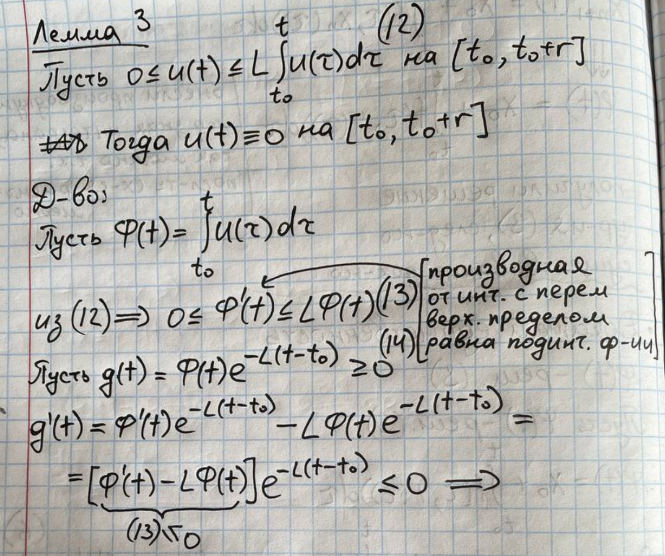 Лемма 3
Пусть 0 ≤ u(t) ≤ L ∫_{t₀}^{t} u(τ)dτ (12) на [t₀, t₀+r]
Тогда u(t) ≡ 0 на [t₀, t₀+r]
Д-во:
Пусть Φ(t) = ∫_{t₀}^{t} u(τ)dτ
из (12) ⟹ 0 ≤ Φ'(t) ≤ LΦ(t) (13)
[производная
от инт. с перем
верх. пределом
равна подинт. ф-ии]
Пусть g(t) = Φ(t)e^{-L(t-t₀)} ≥ 0 (14)
g'(t) = Φ'(t)e^{-L(t-t₀)} - LΦ(t)e^{-L(t-t₀)} =
= [Φ'(t) - LΦ(t)]e^{-L(t-t₀)} ≤ 0 ⟹
(13) ≤ 0